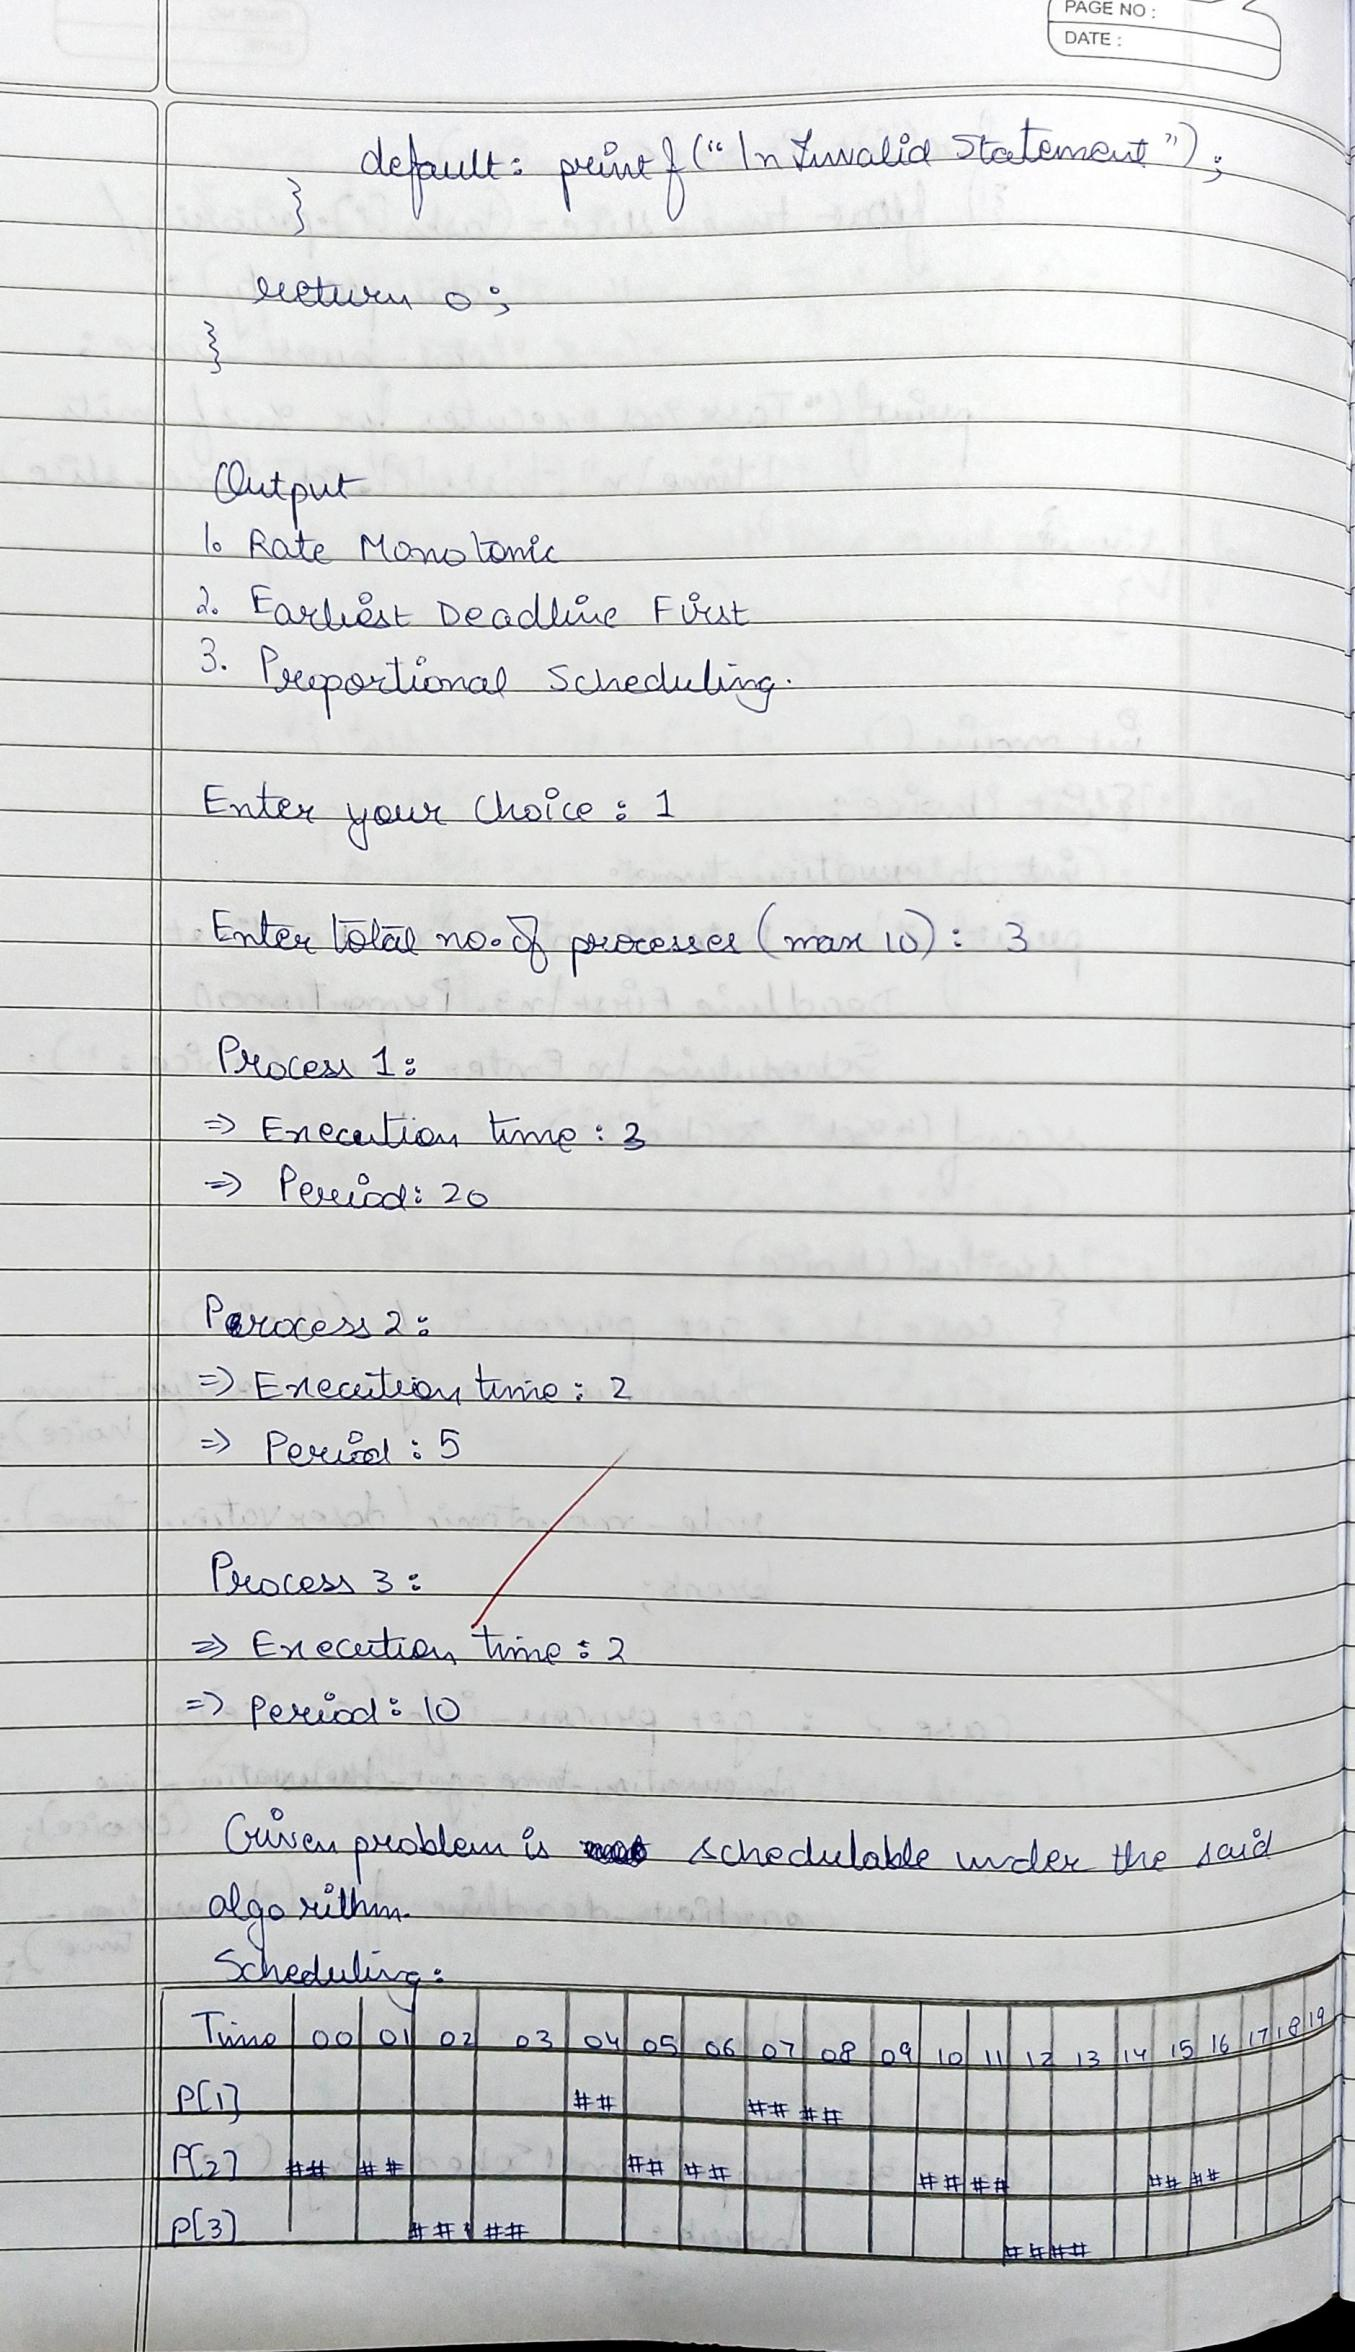 PAGE NO :
DATE :
default: printf("\n Invalid Statement");
}
return 0;
}
Output
1. Rate Monotonic
2. Earliest Deadline First
3. Proportional Scheduling.
Enter your choice : 1
Enter total no. of processes (max 10) : 3
Process 1:
=> Execution time : 3
=> Period: 20
Process 2:
=> Execution time : 2
=> Period : 5
Process 3 :
=> Execution time : 2
=> Period : 10
Given problem is schedulable under the said
algorithm.
Scheduling:
Time 00 01 02 03 04 05 06 07 08 09 10 11 12 13 14 15 16 17 18 19
P[1] ## ## ##
P[2] ## ## ## ## ## ## ## ##
P[3] ## ## ## ##